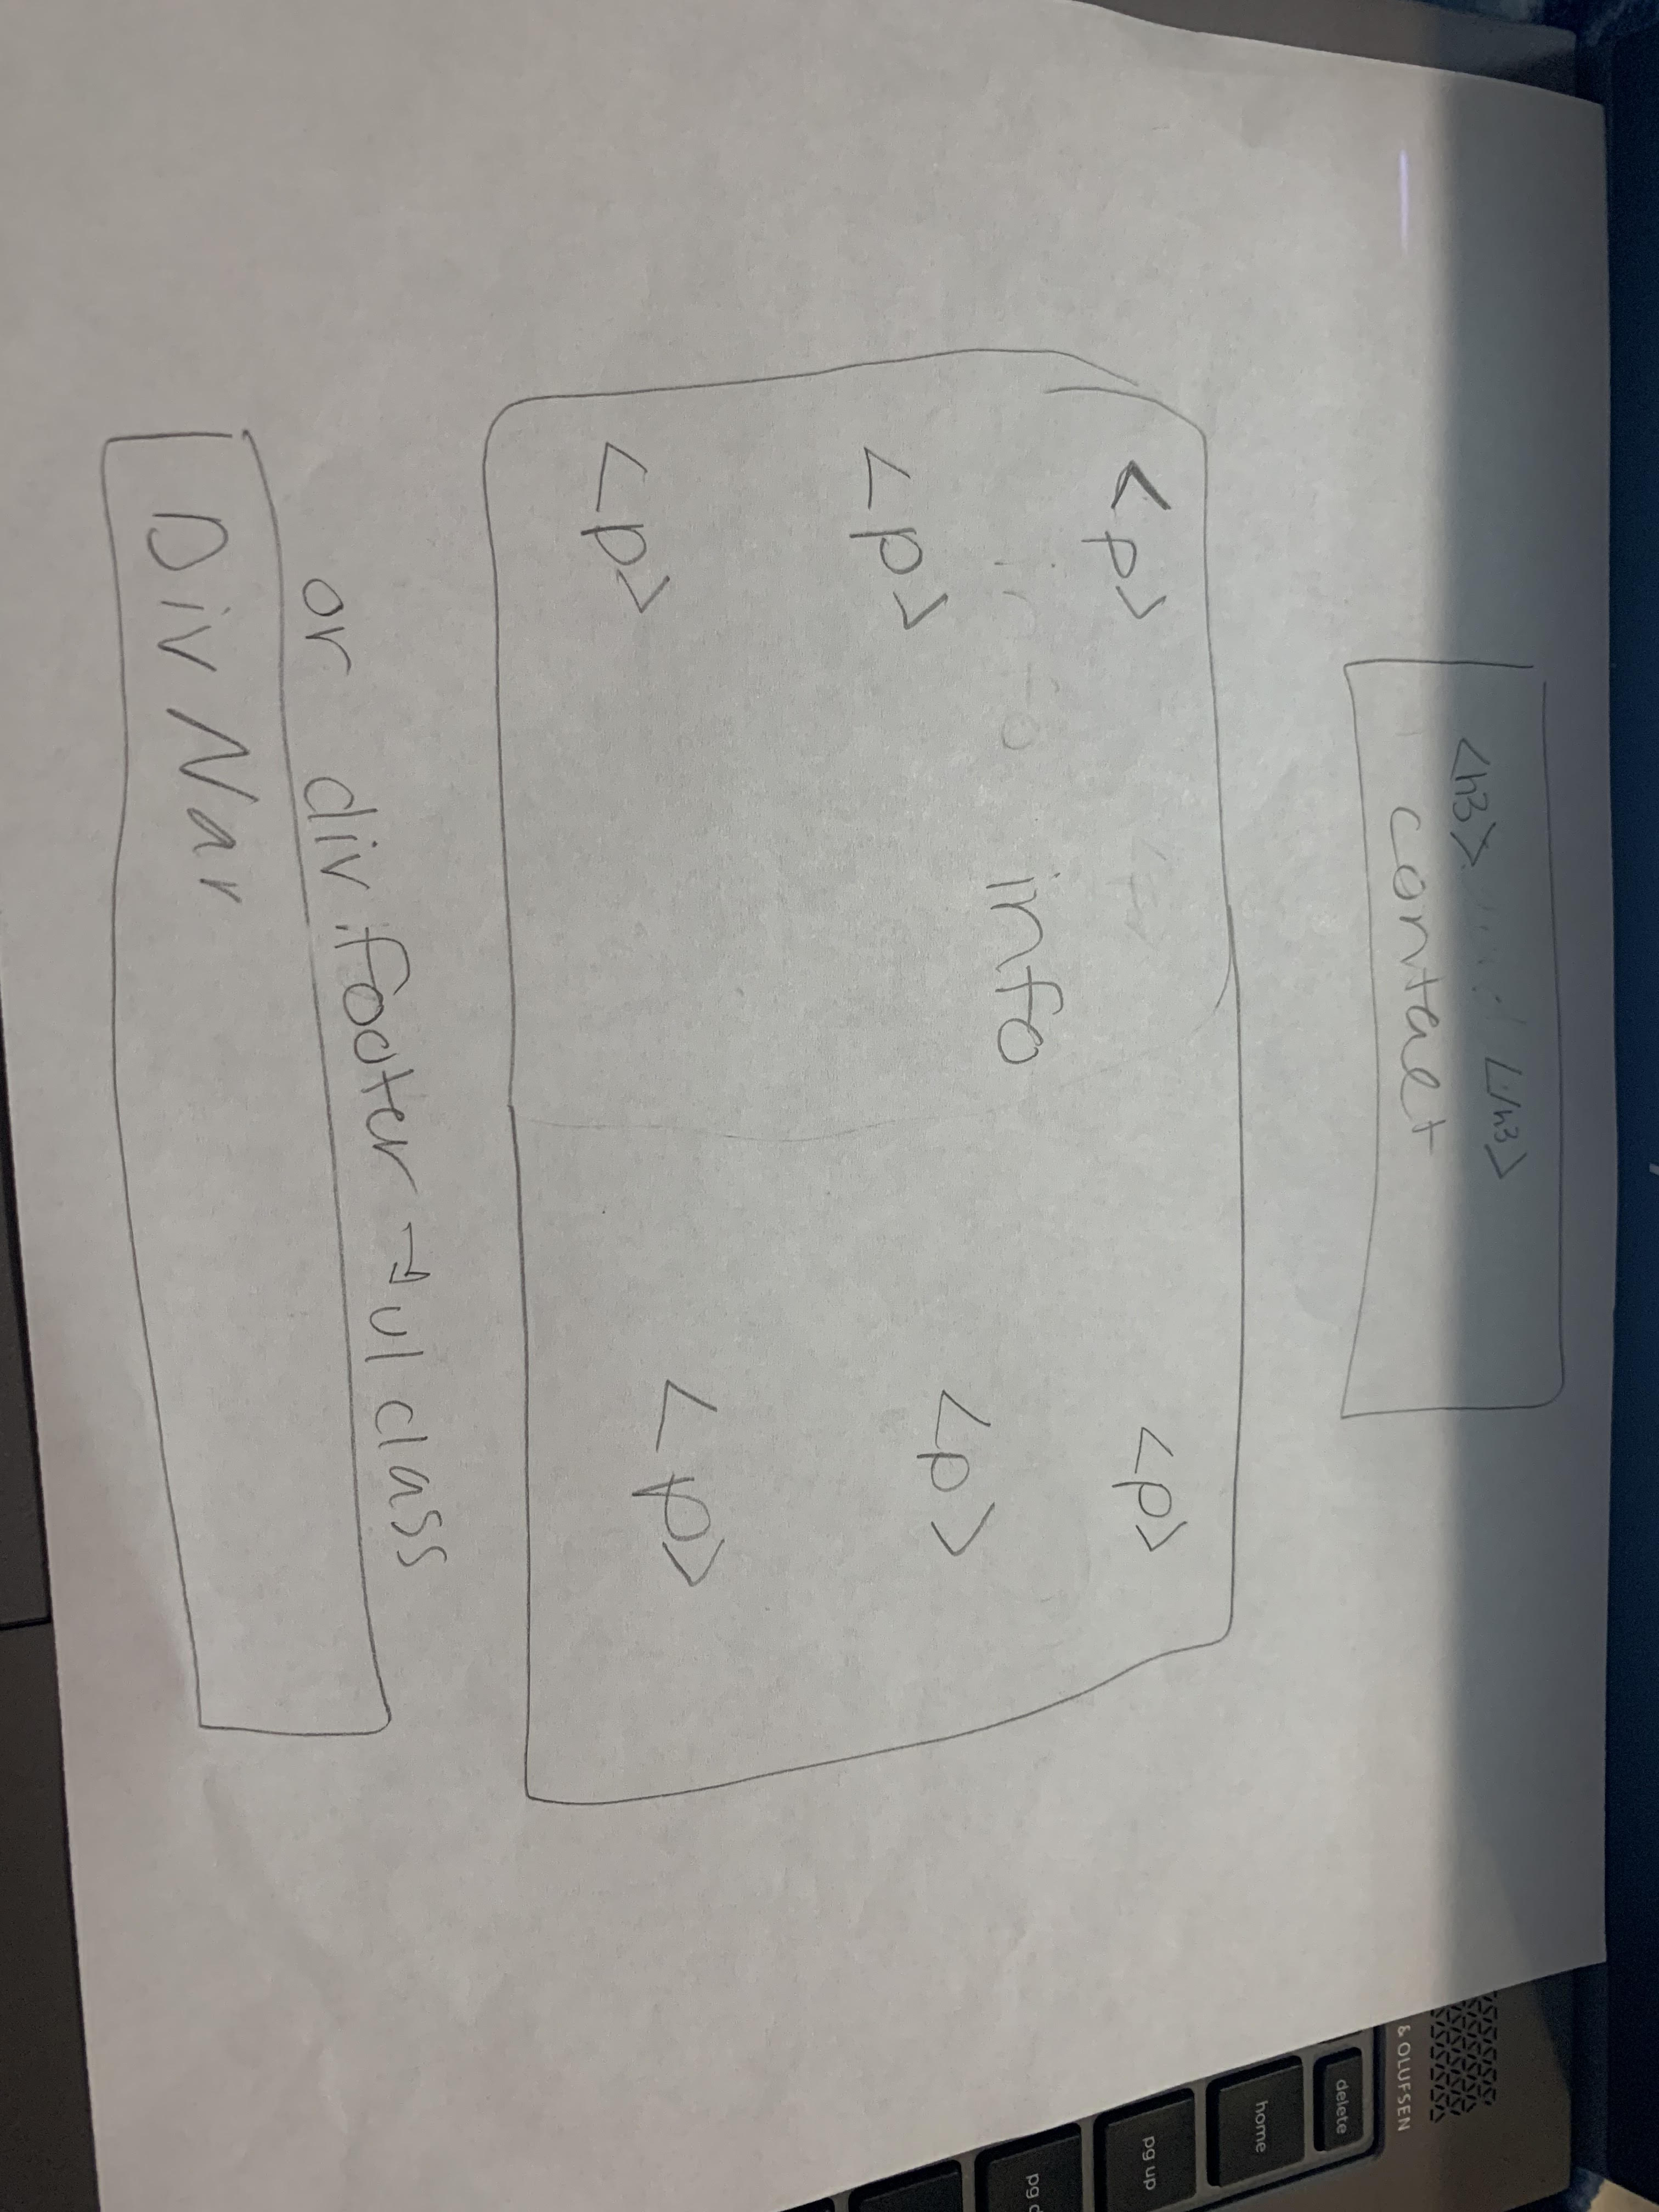 <h3> </h3>
contact
<p> <p>
info
<p> <p>
<p> <p>
or div.footer → ul class
Div Nav
& OLUFSEN
delete
home
pg up